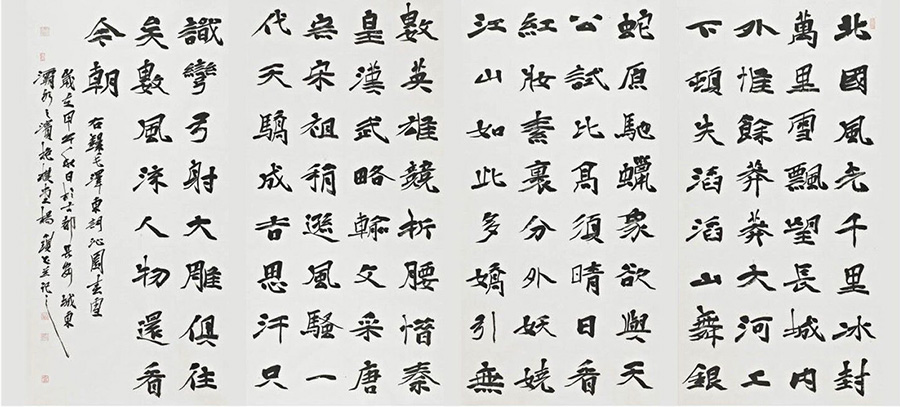 北國風光千里冰封
萬里雪飄望長城內
外惟餘莽莽大河上
下頓失滔滔山舞銀
蛇原馳蠟象欲與天
公試比高須晴日看
紅妝素裹分外妖嬈
江山如此多嬌引無
數英雄競折腰惜秦
皇漢武略輸文采唐
宗宋祖稍遜風騷一
代天驕成吉思汗只
識彎弓射大雕俱往
矣數風流人物還看
今朝
右錄毛澤東詞沁園春雪
歲在甲午秋日於古都長安城東
灞水之濱抱樸堂楊